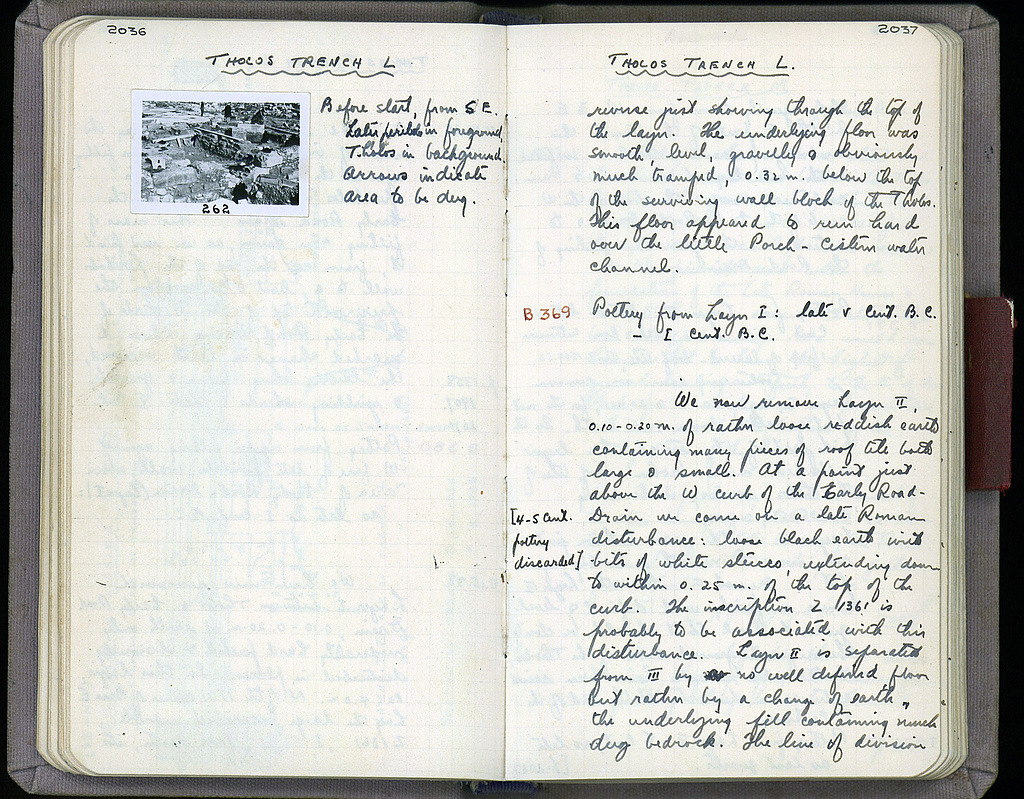 2036
THOLOS TRENCH L
Before start, from SE.
Later peribolos in foreground,
Tholos in background.
Arrows indicate
area to be dug.
262
2037
THOLOS TRENCH L.
reverse just showing through the top of
the layer. The underlying floor was
smooth, level, gravelly & obviously
much tramped, 0.32 m. below the top
of the surviving wall block of the Tholos.
This floor appeared to run hard
over the little Porch-Cistern water
channel.
B 369
Pottery from Layer I: late V cent. B.C.
– I cent. B.C.
We now remove Layer II,
0.10-0.20 m. of rather loose reddish earth
containing many pieces of roof tile both
large & small. At a point just
above the W curb of the Early Road-
Drain we come on a late Roman
[4-5 cent.
pottery
discarded]
disturbance: loose black earth with
bits of white stucco extending down
to within 0.25 m. of the top of the
curb. The inscription I 1361 is
probably to be associated with this
disturbance. Layer II is separated
from III by no well defined floor
but rather by a change of earth,
the underlying fill containing much
dug bedrock. The line of division